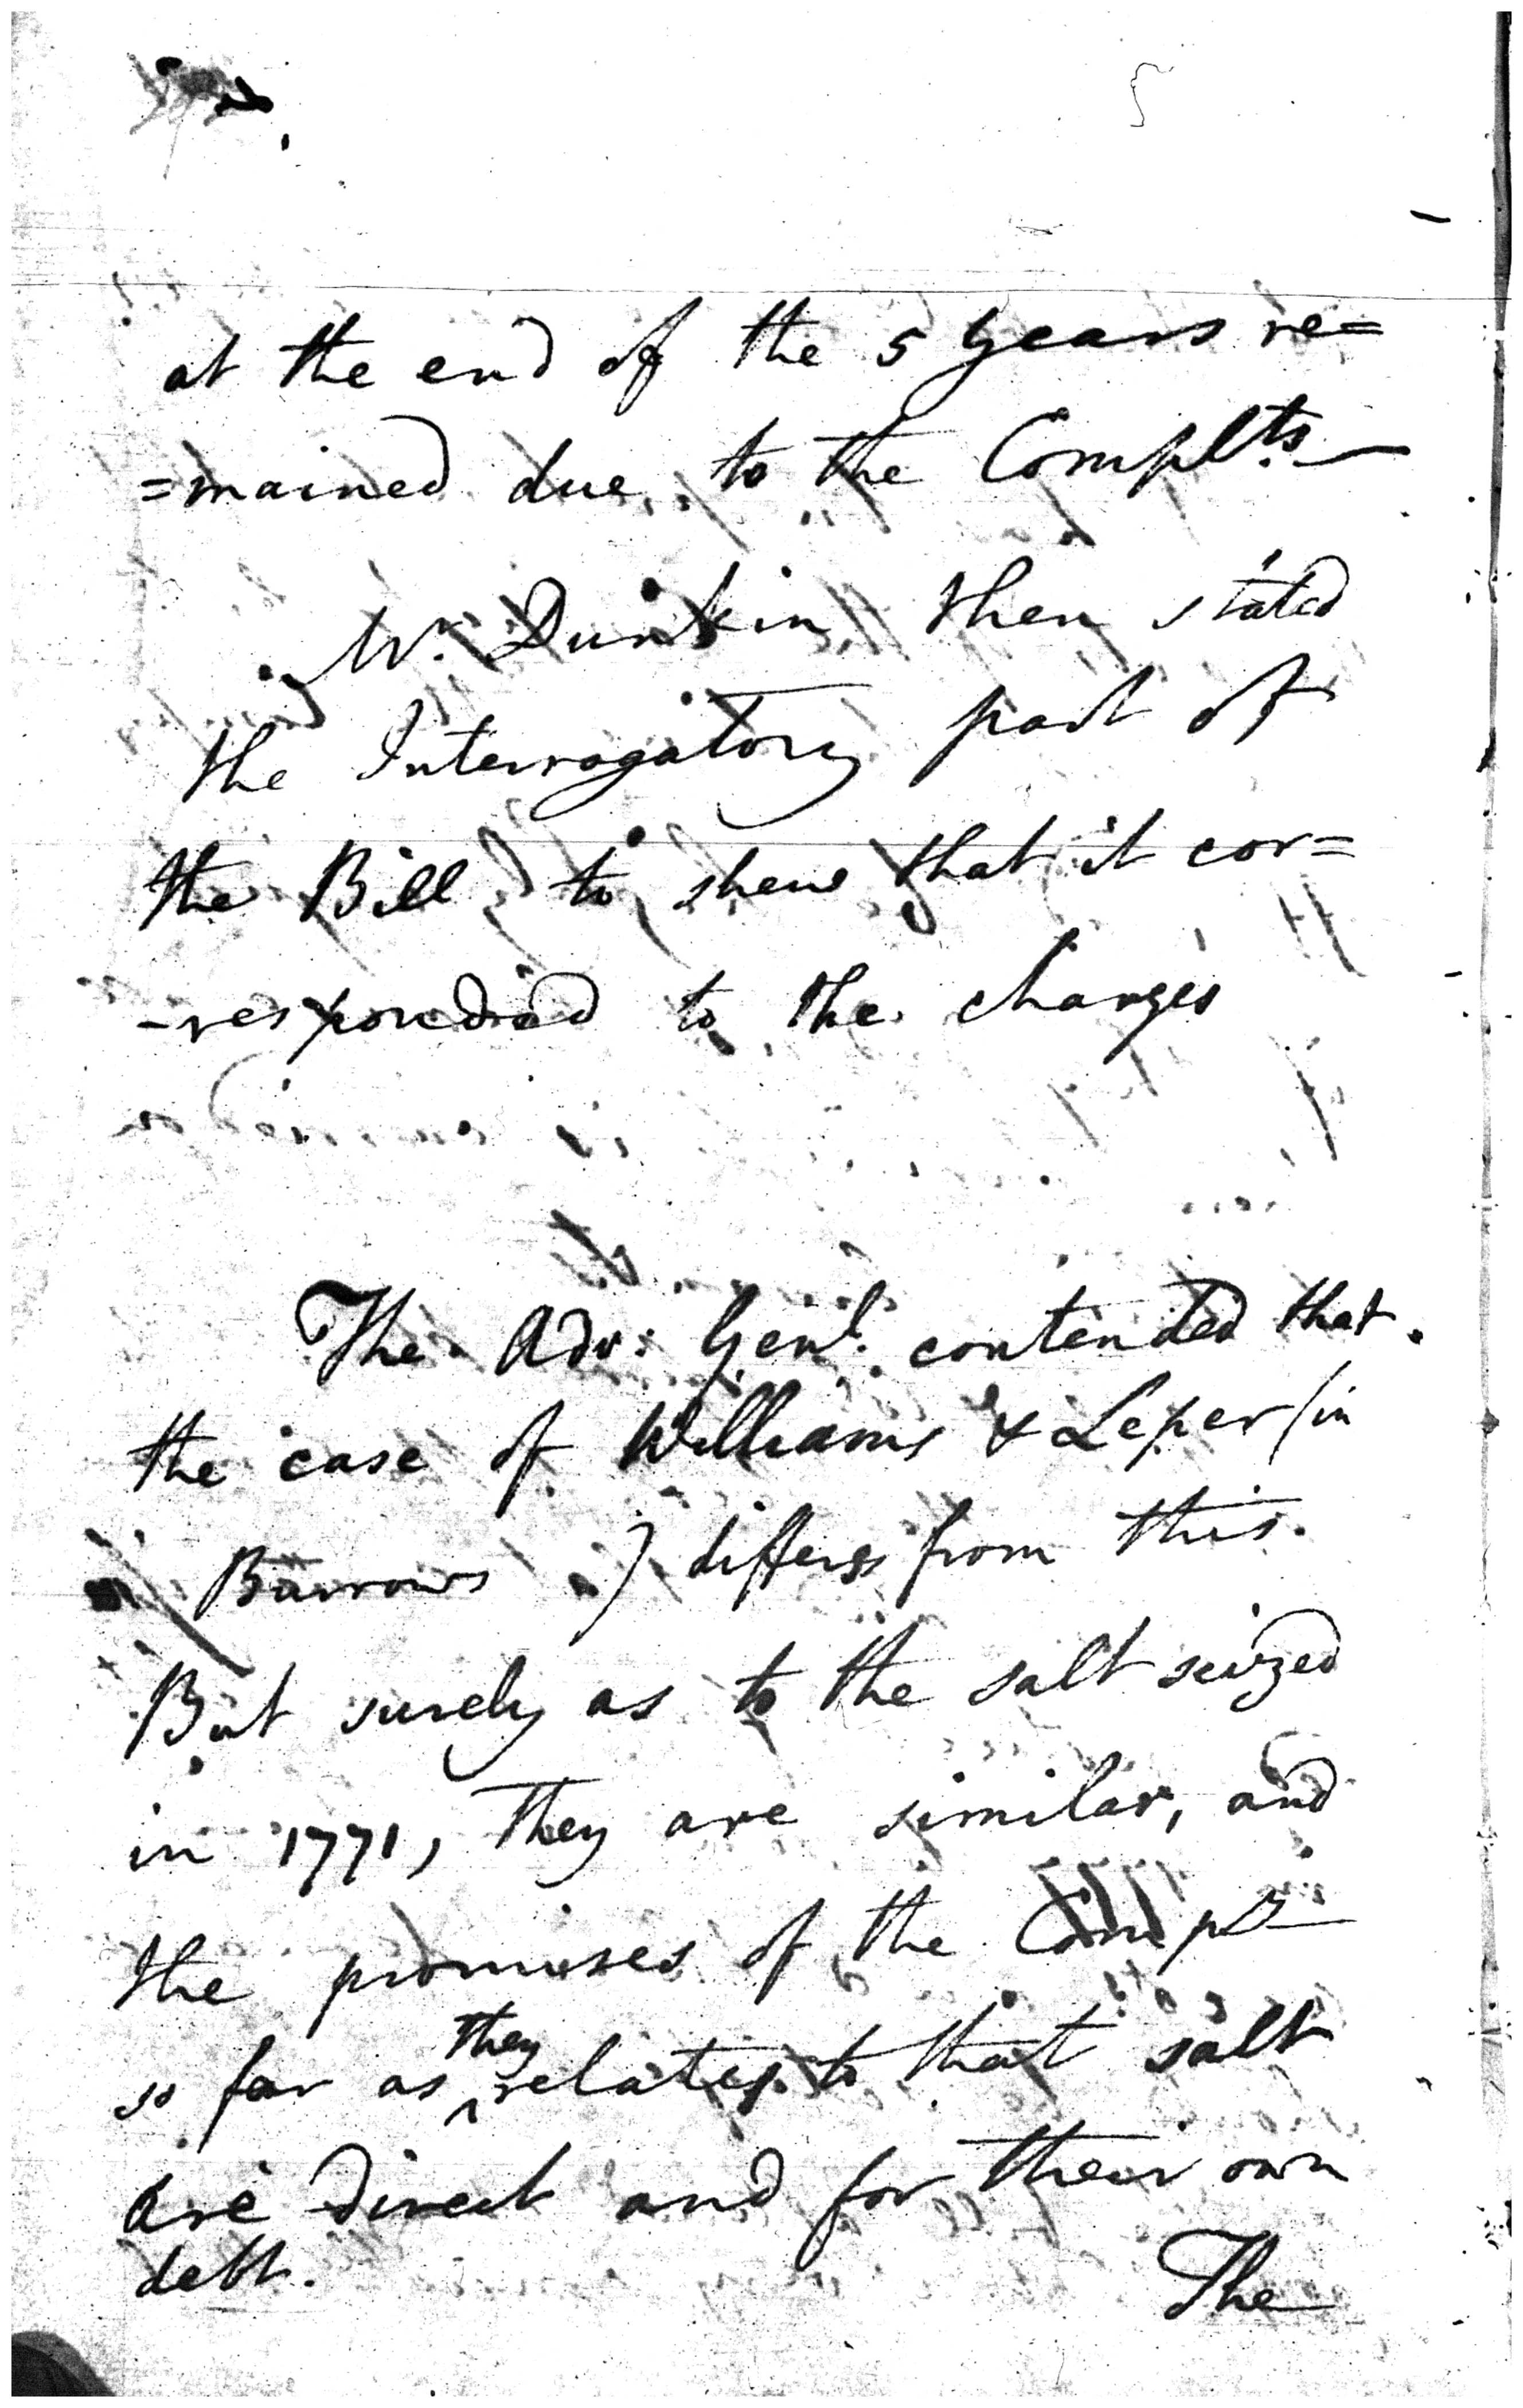 5
at the end of the 5 years re=
=mained due to the Complts
Mr. Dunkin then stated
the Interrogatory part of
the Bill to shew that it cor=
-responded to the charges
The Adv: Genl. contended that
the case of Williams & Leper (in
Burrows ) differs from this.
But surely as to the salt seized
in 1771, they are similar, and
the promises of the Compy
so far as they relates to that salt
are direct and for their own
debt.
The